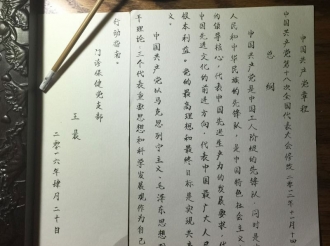 中国共产党章程
中国共产党第十八次全国代表大会修改 二零一二 十一月十四
总纲
中国共产党是中国工人阶级的先锋队,同时是
人民和中华民族的先锋队,是中国特色社会主义
的领导核心,代表中国先进生产力的发展要求,代
中国先进文化的前进方向,代表中国最广大人民
根本利益。党的最高理想和最终目标是实现共
义。
中国共产党以马克思列宁主义、毛泽东思想、
平理论、三个代表重要思想和科学发展观作为自己
行动指南。
门诊保健党支部
王晨
二零一六年肆月二十日